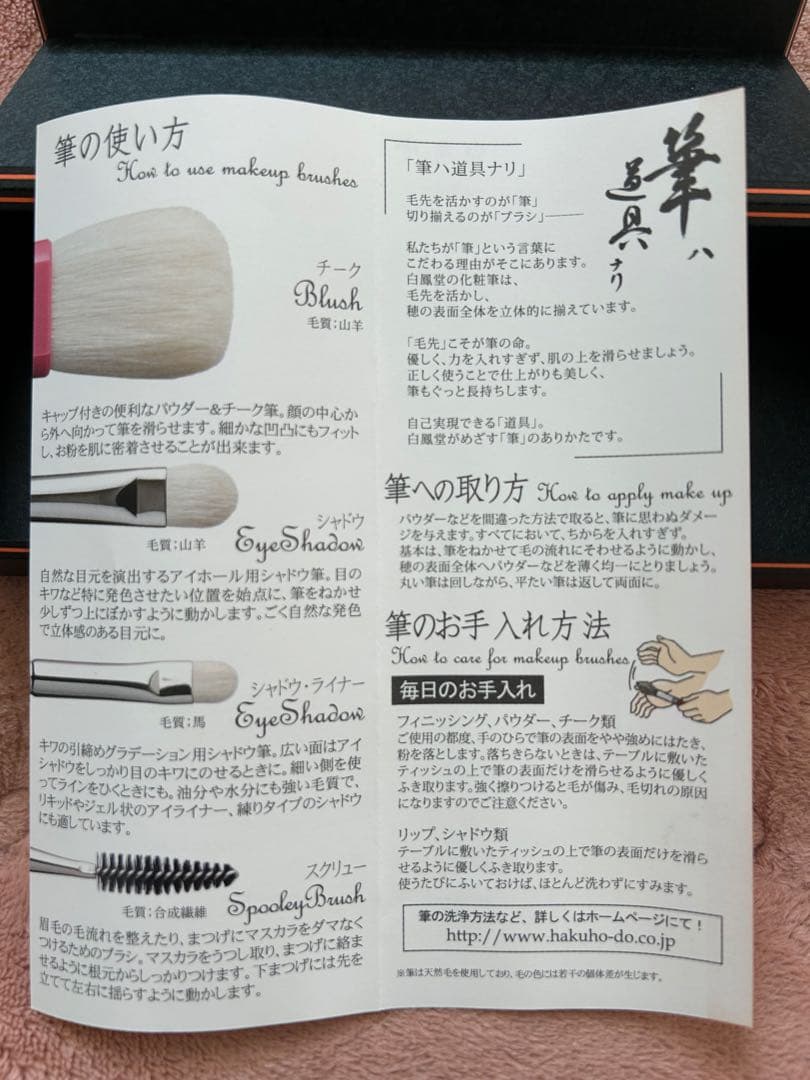 筆の使い方
How to use makeup brushes
チーク
Blush
毛質:山羊
キャップ付きの便利なパウダー&チーク筆。顔の中心か
ら外へ向かって筆を滑らせます。細かな凹凸にもフィット
し、お粉を肌に密着させることが出来ます。
シャドウ
EyeShadow
毛質:山羊
自然な目元を演出するアイホール用シャドウ筆。目の
キワなど特に発色させたい位置を始点に、筆をねかせ
少しずつ上にぼかすように動かします。ごく自然な発色
で立体感のある目元に。
シャドウ・ライナー
EyeShadow
毛質:馬
キワの引締めグラデーション用シャドウ筆。広い面はアイ
シャドウをしっかり目のキワにのせるときに。細い側を使
ってラインをひくときにも。油分や水分にも強い毛質で、
リキッドやジェル状のアイライナー、練りタイプのシャドウ
にも適しています。
スクリュー
SpooleyBrush
毛質:合成繊維
眉毛の毛流れを整えたり、まつげにマスカラをダマなく
つけるためのブラシ。マスカラをうつし取り、まつげに絡ま
せるように根元からしっかりつけます。下まつげには先を
立てて左右に揺らすように動かします。
筆ハ
道具ナリ
「筆ハ道具ナリ」
毛先を活かすのが「筆」
切り揃えるのが「ブラシ」――
私たちが「筆」という言葉に
こだわる理由がそこにあります。
白鳳堂の化粧筆は、
毛先を活かし、
穂の表面全体を立体的に揃えています。
「毛先」こそが筆の命。
優しく、力を入れすぎず、肌の上を滑らせましょう。
正しく使うことで仕上がりも美しく、
筆もぐっと長持ちします。
自己実現できる「道具」。
白鳳堂がめざす「筆」のありかたです。
筆への取り方 How to apply make up
パウダーなどを間違った方法で取ると、筆に思わぬダメー
ジを与えます。すべてにおいて、ちからを入れすぎず。
基本は、筆をねかせて毛の流れにそわせるように動かし、
穂の表面全体へパウダーなどを薄く均一にとりましょう。
丸い筆は回しながら、平たい筆は返して両面に。
筆のお手入れ方法
How to care for makeup brushes
毎日のお手入れ
フィニッシング、パウダー、チーク類
ご使用の都度、手のひらで筆の表面をやや強めにはたき、
粉を落とします。落ちきらないときは、テーブルに敷いた
ティッシュの上で筆の表面だけを滑らせるように優しく
ふき取ります。強く擦りつけると毛が傷み、毛切れの原因
になりますのでご注意ください。
リップ、シャドウ類
テーブルに敷いたティッシュの上で筆の表面だけを滑ら
せるように優しくふき取ります。
使うたびにふいておけば、ほとんど洗わずにすみます。
筆の洗浄方法など、詳しくはホームページにて!
http://www.hakuho-do.co.jp
※筆は天然毛を使用しており、毛の色には若干の個体差が生じます。